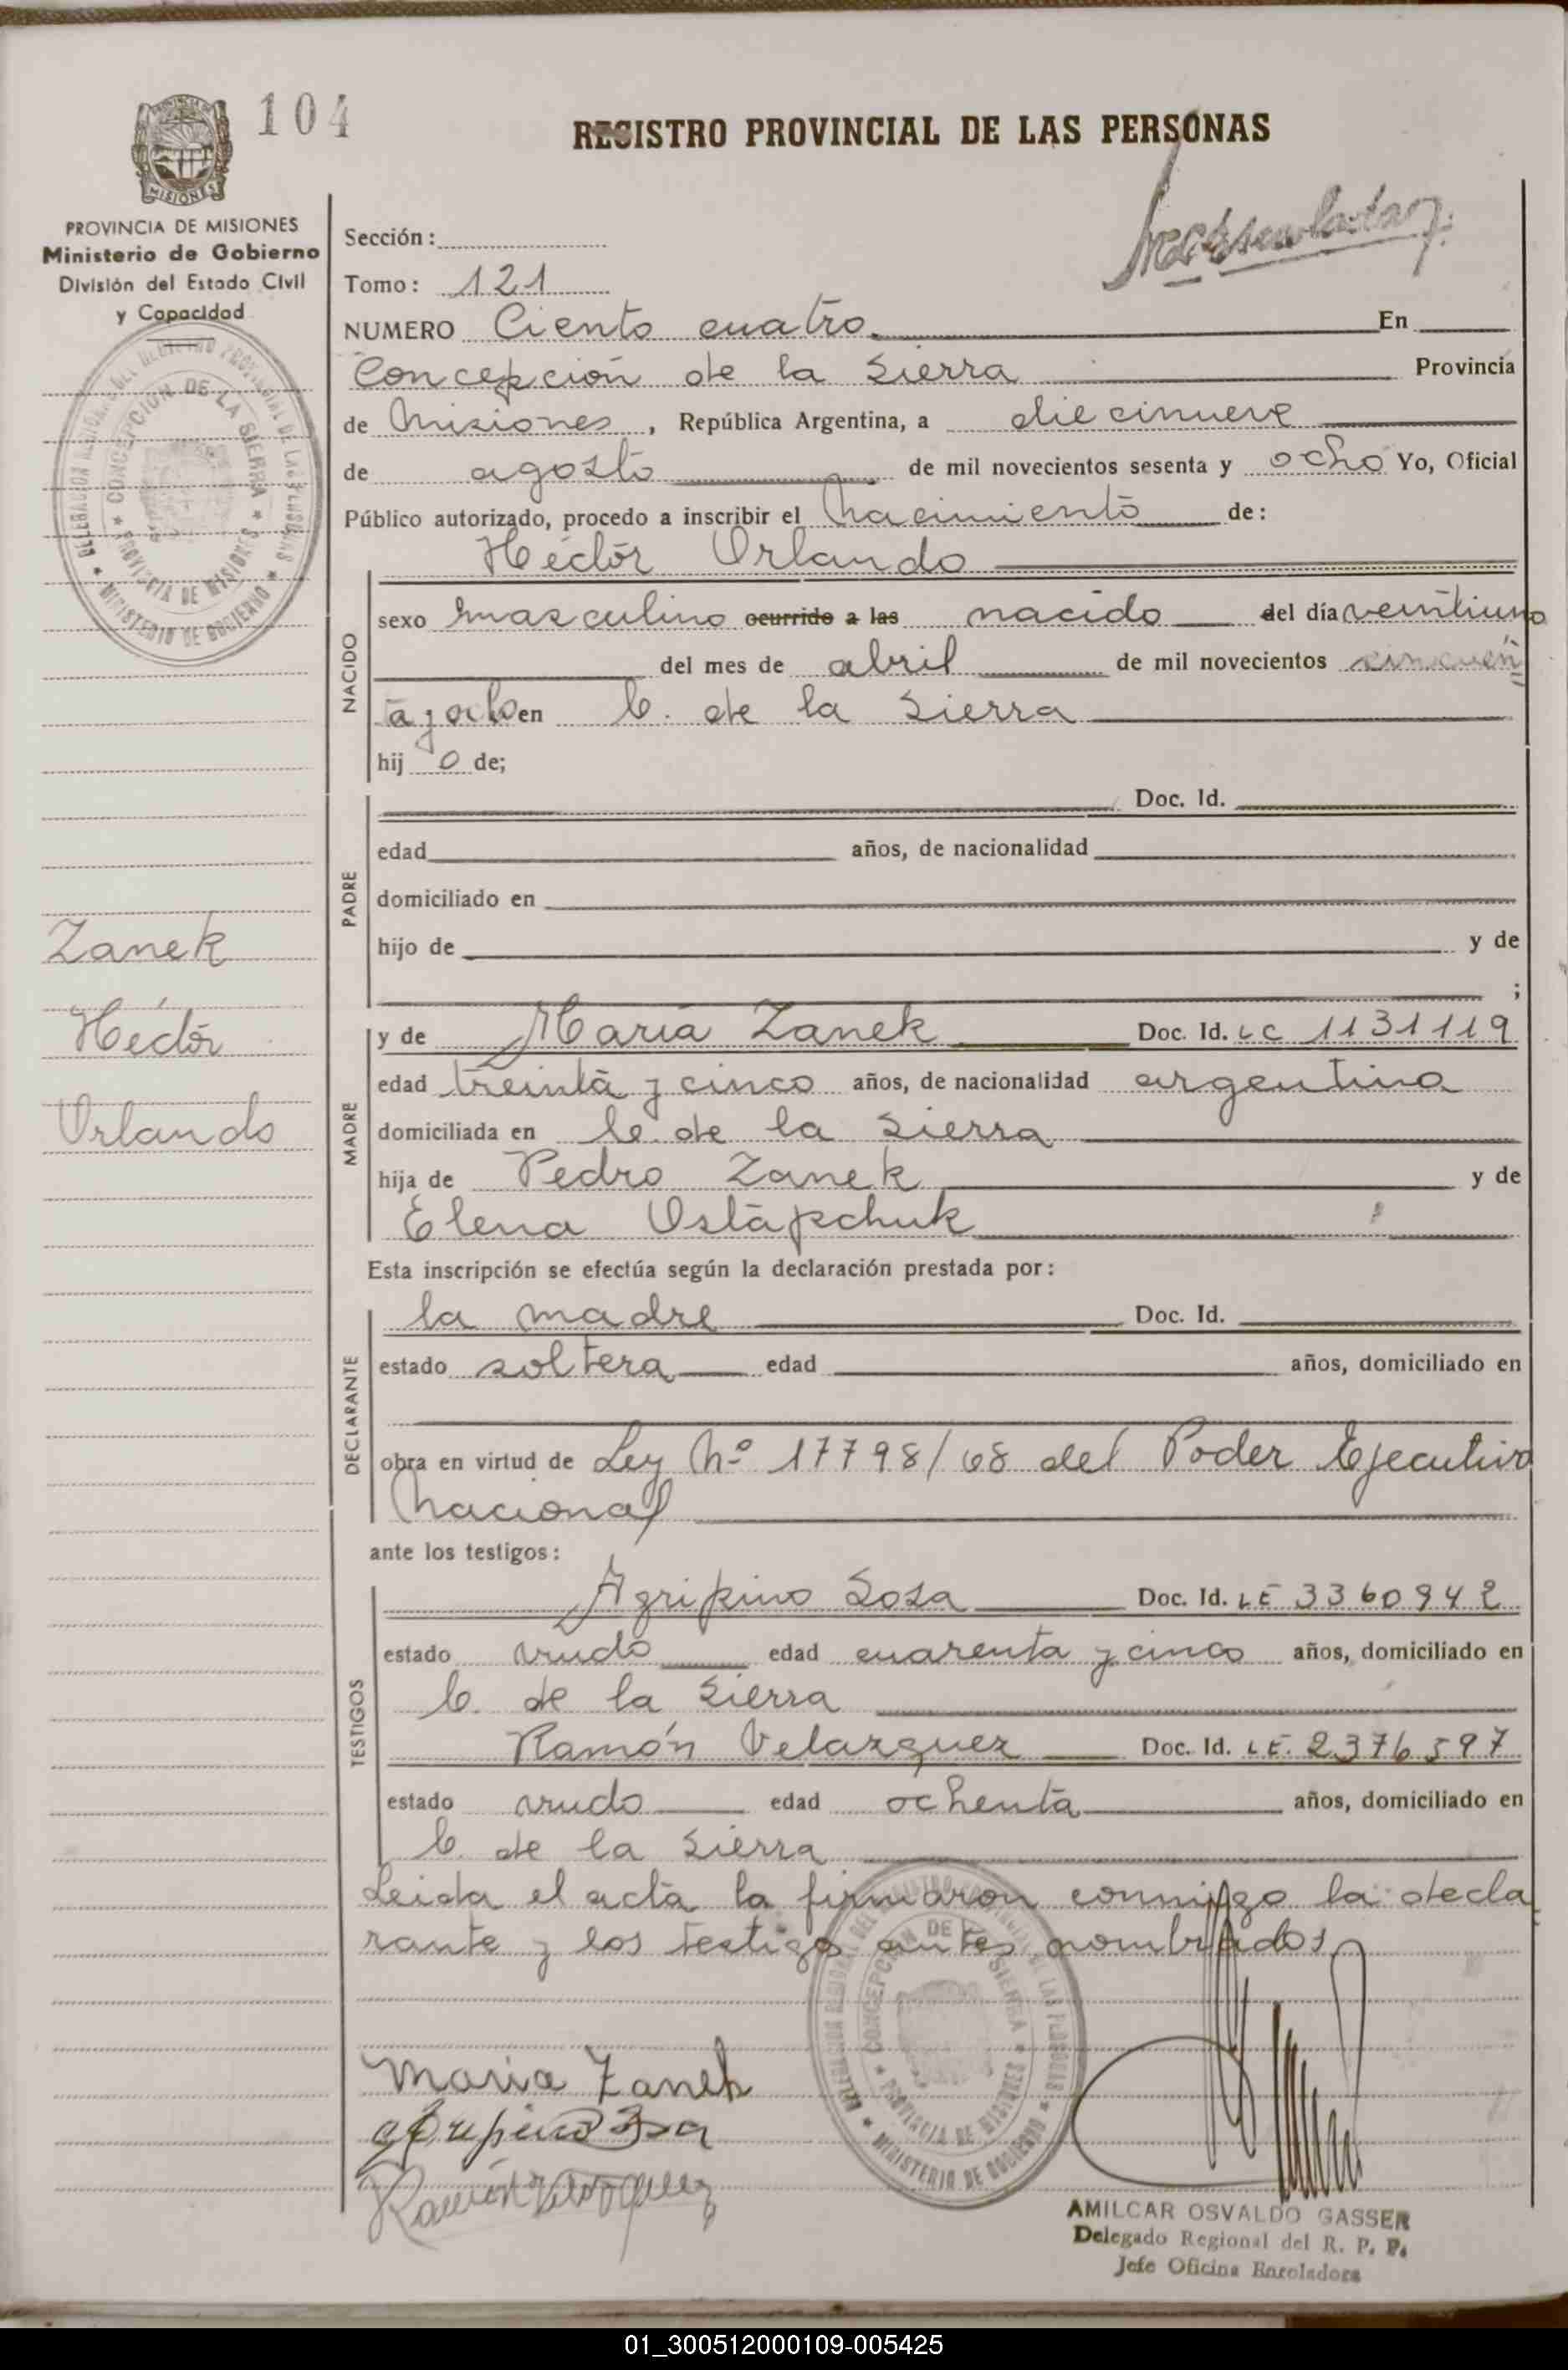 104
REGISTRO PROVINCIAL DE LAS PERSONAS
MISIONES
PROVINCIA DE MISIONES
Ministerio de Gobierno
División del Estado Civil
y Capacidad
Sección:
Tomo: 121
NUMERO Ciento cuatro En
Concepción de la Sierra Provincia
de Misiones, República Argentina, a diecinueve
de agosto de mil novecientos sesenta y ocho Yo, Oficial
Público autorizado, procedo a inscribir el Nacimiento de:
Héctor Orlando
NACIDO
sexo masculino ocurrido a las nacido del día veintiuno
del mes de abril de mil novecientos cincuen
ta y ocho en C. de la Sierra
hij o de;
PADRE
Doc. Id.
edad años, de nacionalidad
domiciliado en
hijo de y de
;
Zanek
Héctor
Orlando
MADRE
y de María Zanek Doc. Id. LC 1131119
edad treinta y cinco años, de nacionalidad argentina
domiciliada en C. de la Sierra
hija de Pedro Zanek y de
Elena Ostapchuk
Esta inscripción se efectúa según la declaración prestada por:
DECLARANTE
la madre Doc. Id.
estado soltera edad años, domiciliado en
obra en virtud de Ley Nº 17798/68 del Poder Ejecutivo
Nacional
ante los testigos:
TESTIGOS
Agripino Sosa Doc. Id. LE 3360942
estado viudo edad cuarenta y cinco años, domiciliado en
C. de la Sierra
Ramón Velazquez Doc. Id. LE. 2376597
estado viudo edad ochenta años, domiciliado en
C. de la Sierra
Leida el acta la firmaron conmigo la decla
rante y los testigos antes nombrados
DELEGACION REGIONAL DEL REGISTRO PROVINCIAL DE LAS PERSONAS
CONCEPCION DE LA SIERRA
PROVINCIA DE MISIONES
MINISTERIO DE GOBIERNO
Maria Zanek
Agripino Sosa
Ramón Velazquez
AMILCAR OSVALDO GASSER
Delegado Regional del R. P. P.
Jefe Oficina Enroladora
01_300512000109-005425